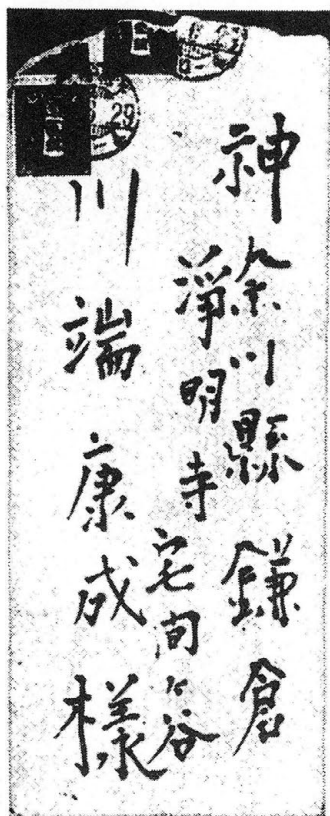 神奈川縣鎌倉
淨明寺宅間ヶ谷
川端康成樣
29